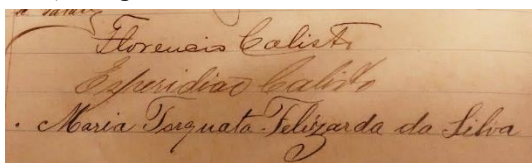 Florencio Calisto
Esperidiao Calisto
Maria Torquata Felizarda da Silva